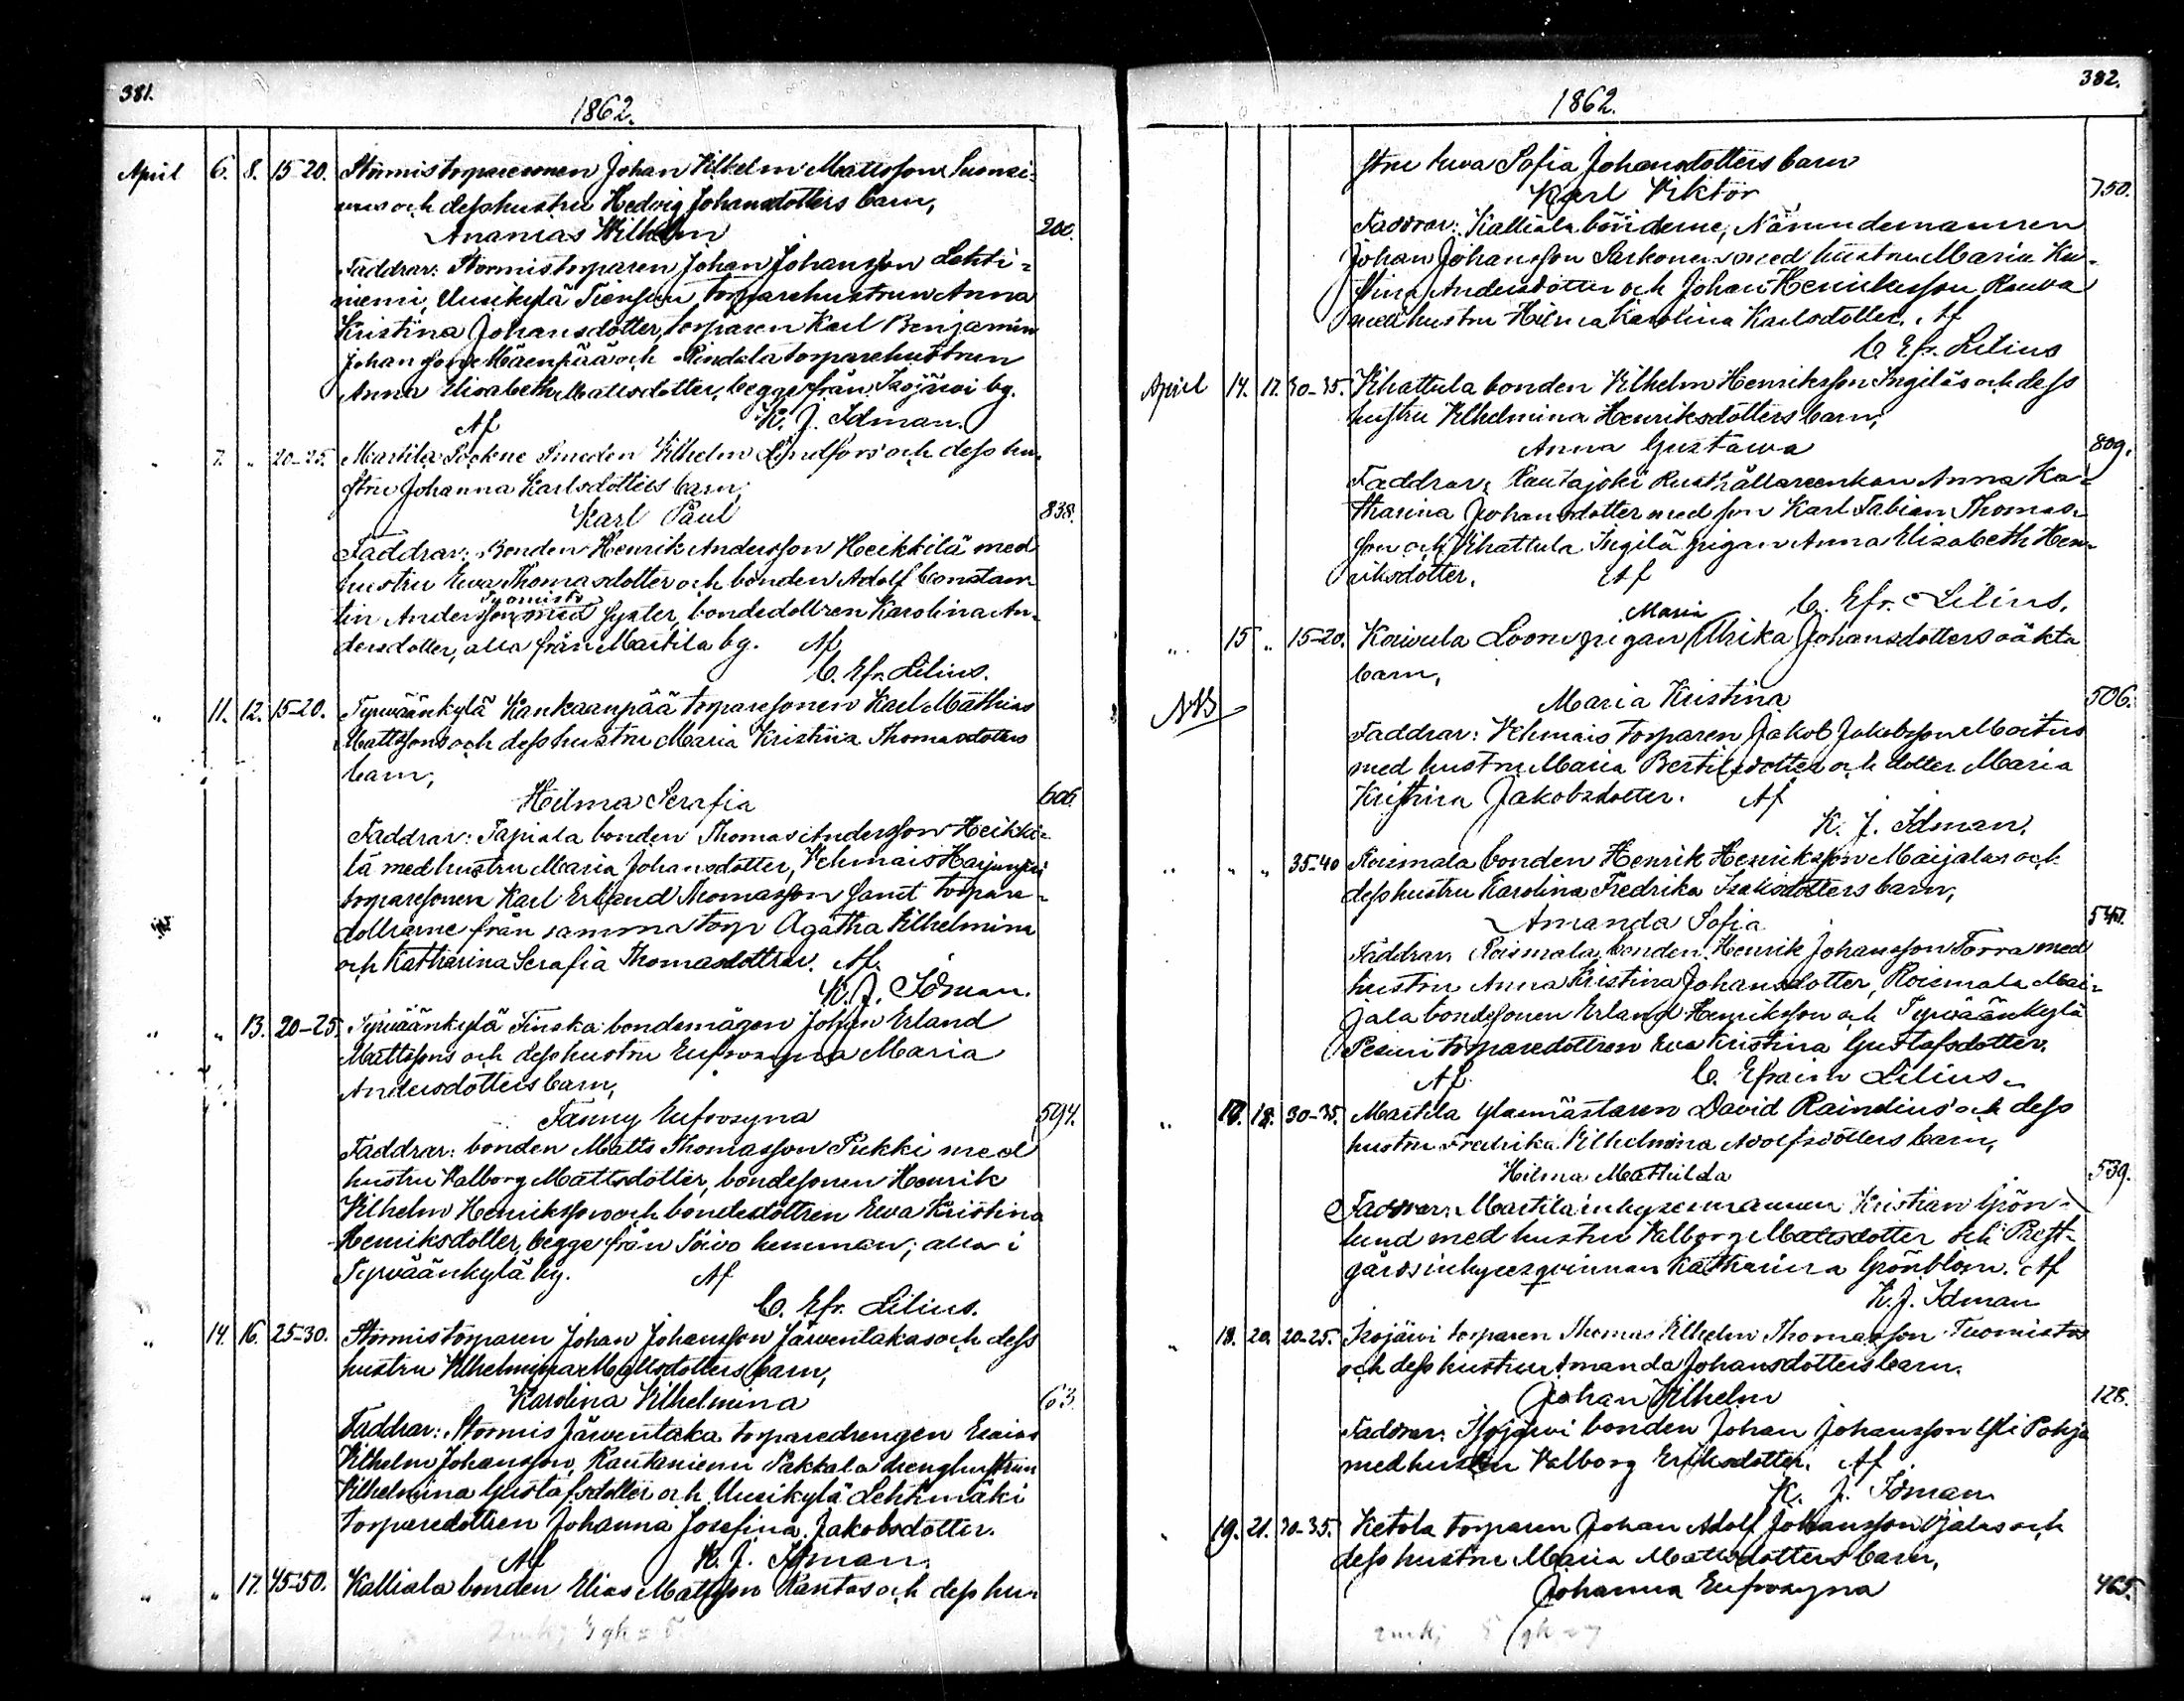 381.
1862.
April 6. 8. 15-20. Stormis torparesonen Johan Vilhelm Mattsson Suonei-
och dess hustru Hedvig Johansdotters barn,
Ananias Wilhelm 200.
Faddrar: Stormis torparen Johan Johansson Lehti-
niemi, Uusikylä torparehustrun Anna
Kristina Johansdotter, torparen Karl Benjamin
Johansson Mäenpää och Rindala torparehustrun
Anna Elisabeth Mattsdotter, begge från Isojärvi by.
Af K. J. Idman.
" 7. " 20-25. Martila Sockne Smeden Vilhelm och dess hu-
stru Johanna Karlsdotters barn,
Karl Paul 838.
Faddrar: Bonden Henrik Andersson Heikkilä med
hustru Ewa Thomasdotter och bonden Adolf Constan-
Tyomisto
tin Andersson med syster, bondedottren Karolina An-
dersdotter, alla från Martila by. Af
C. Efr. Lilius.
" 11. 12. 15-20. Tyrväänkylä Kankaanpää torparesonen Karl Mathias
Mattssons och dess hustru Maria Kristina Thomasdotters
barn,
Hilma Serafia 606
Faddrar: Tapiala bonden Thomas Andersson Heikki-
lä med hustru Maria Johansdotter, Vehmais Harjunpää
torparesonen Karl Erland Thomasson samt torpare-
dottrarne från samma torp Agatha Vilhelmina
och Katharina Serafia Thomasdottrar. Af.
K. J. Idman.
" " 13. 20-25. Tyrväänkylä Finska bondemågen Johan Erland
Mattssons och dess hustru Eufrosyna Maria
Andersdotters barn,
Fanny Eufrosyna 594.
Faddrar: bonden Matts Thomasson Pukki med
hustru Valborg Mattsdotter, bondesonen Henrik
Vilhelm Henriksson och bondedottren Ewa Kristina
Henriksdotter, begge från hemman; alla i
Tyrväänkylä by. Af
C. Efr. Lilius.
" 14. 16. 25-30. Stormis torparen Johan Johansson Järventakas och dess
hustru Vilhelmina Mattsdotters barn,
Karolina Vilhelmina 63
Faddrar: Stormis Järventaka torparedrengen Esaias
Vilhelm Johansson, Rautaniemi Pakkala drenghustrun
Vilhelmina Gustafsdotter och Uusikylä Lehtimäki
torparedottren Johanna Josefina Jakobsdotter.
Af K. J. Idman.
" " 17. 45-50. Kalliala bonden Elias Mattsson Rantas och dess hu-
382.
1862.
stru Ewa Sofia Johansdotters barn
Karl Viktor 750.
Faddrar: Kalliala bönderne, Nämndemannen
Johan Johansson med hustru Maria Kri-
stina Andersdotter och Johan Henriksson Rauva
med hustru Hilma Karolina Karlsdotter. Af
C. Efr. Lilius
April 14. 17. 30-35. Vihattula bonden Vilhelm Henriksson Ingiläs och dess
hustru Vilhelmina Henriksdotters barn,
Anna Gustawa 809.
Faddrar: Rautajoki Rusthållareenkan Anna Ka-
tharina Johansdotter med son Karl Fabian Thomas-
son och Vihattula Ingilä pigan Anna Elizabeth Hen-
riksdotter. Af
C. Efr. Lilius.
Maria
" 15 " 15-20. Koivula Loom pigan Ulrika Johansdotters oäkta
barn,
NB Maria Kristina 506.
Faddrar: Vehmais torparen Jakob Jakobsson Moitus
med hustru Maria Bertilsdotter och dotter Maria
Kristina Jakobsdotter. Af
K. J. Idman.
" " " 35-40 Roismala bonden Henrik Henriksson Maijalas och
dess hustru Karolina Fredrika Isaksdotters barn,
Amanda Sofia
Faddrar: Roismala bonden Henrik Johansson Torra med
hustru Anna Kristina Johansdotter, Roismala Mai-
jala bondesonen Erland Henriksson och Tyrväänkylä
Pesuri torparedottren Eva Kristina Gustafsdotter.
Af. C. Efraim Lilius.
" 17. 18. 30-35. Martila glasmästaren David Raindius och dess
hustru Fredrika Vilhelmina Adolfsdotters barn,
Hilma Mathilda 539.
Faddrar: Martila inhysesmannen Kristian Grön-
lund med hustru Valborg Mattsdotter och Prest-
gårds inhyses qvinnan Katharina Grönblom. Af
K. J. Idman
" 18. 20. 20-25. Isojärvi torparen Thomas Vilhelm Thomasson Tuomisto
och dess hustru Amanda Johansdotters barn.
Johan Vilhelm 128.
Faddrar: Isojärvi bonden Johan Johansson Yli Pohja
med hustru Valborg Eriksdotter. Af
K. J. Idman
" 19. 21. 30-35. Ketola torparen Johan Adolf Johansson Ojalas och
dess hustru Maria Mattsdotters barn,
Johanna Eufrosyna 465.